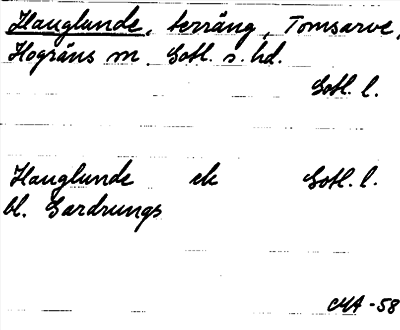 Hauglunde, terräng, Tomsarve,
Hogräns sn. Gotl. s. hd.
Gotl. l.
Hauglunde ek Gotl. l.
bl. Gardrungs
MA -58